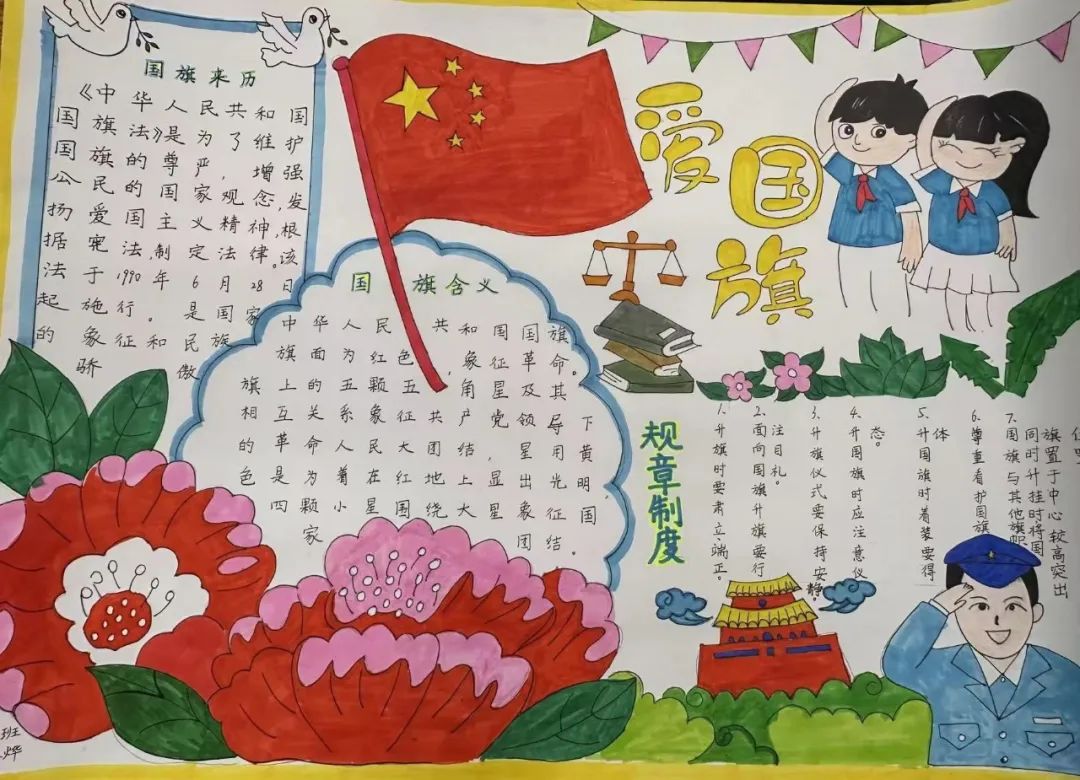 国旗来历
《中华人民共和国
国旗法》是为了维护
国旗的尊严,增强
公民的国家观念,发
扬爱国主义精神,根
据宪法,制定法律。该
法于1990年6月28日
起施行。是国家
的象征和民族
骄傲
爱国旗
国旗含义
中华人民共和国国旗
旗面为红色,象征革命。
旗上的五颗五角星及其
相互关系象征共产党领导下
的革命人民大团结,星用黄
色是为着在红地上显出光明
四颗小星围绕大星象征国
家团结。
规章制度
1.升旗时要肃立端正。
2.面向国旗升旗要行
注目礼。
3.升旗仪式要保持安静。
4.升国旗时应注意仪
态。
5.升国旗时着装要得
体
6.尊重看护国旗
7.国旗与其他旗
同时升挂时将国
旗置于中心较高突出
班
烨